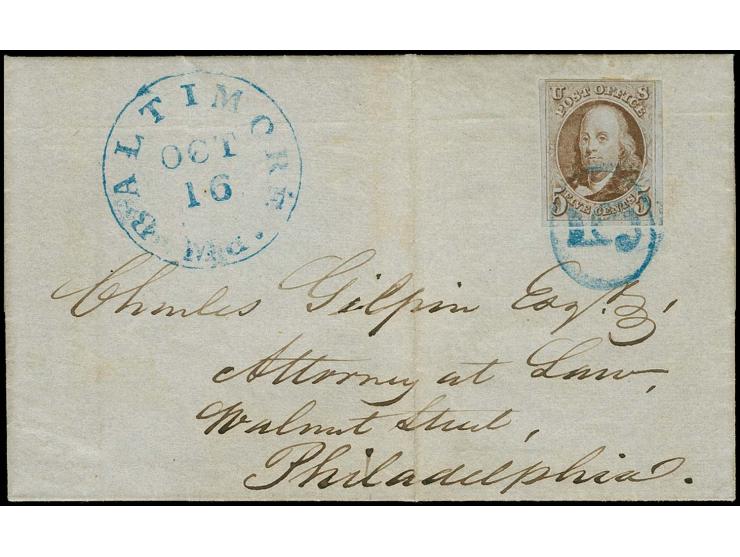 BALTIMORE Md.
OCT
16
U S
POST OFFICE
5 FIVE CENTS 5
Charles Gilpin Esqr.
Attorney at Law,
Walnut Street,
Philadelphia.